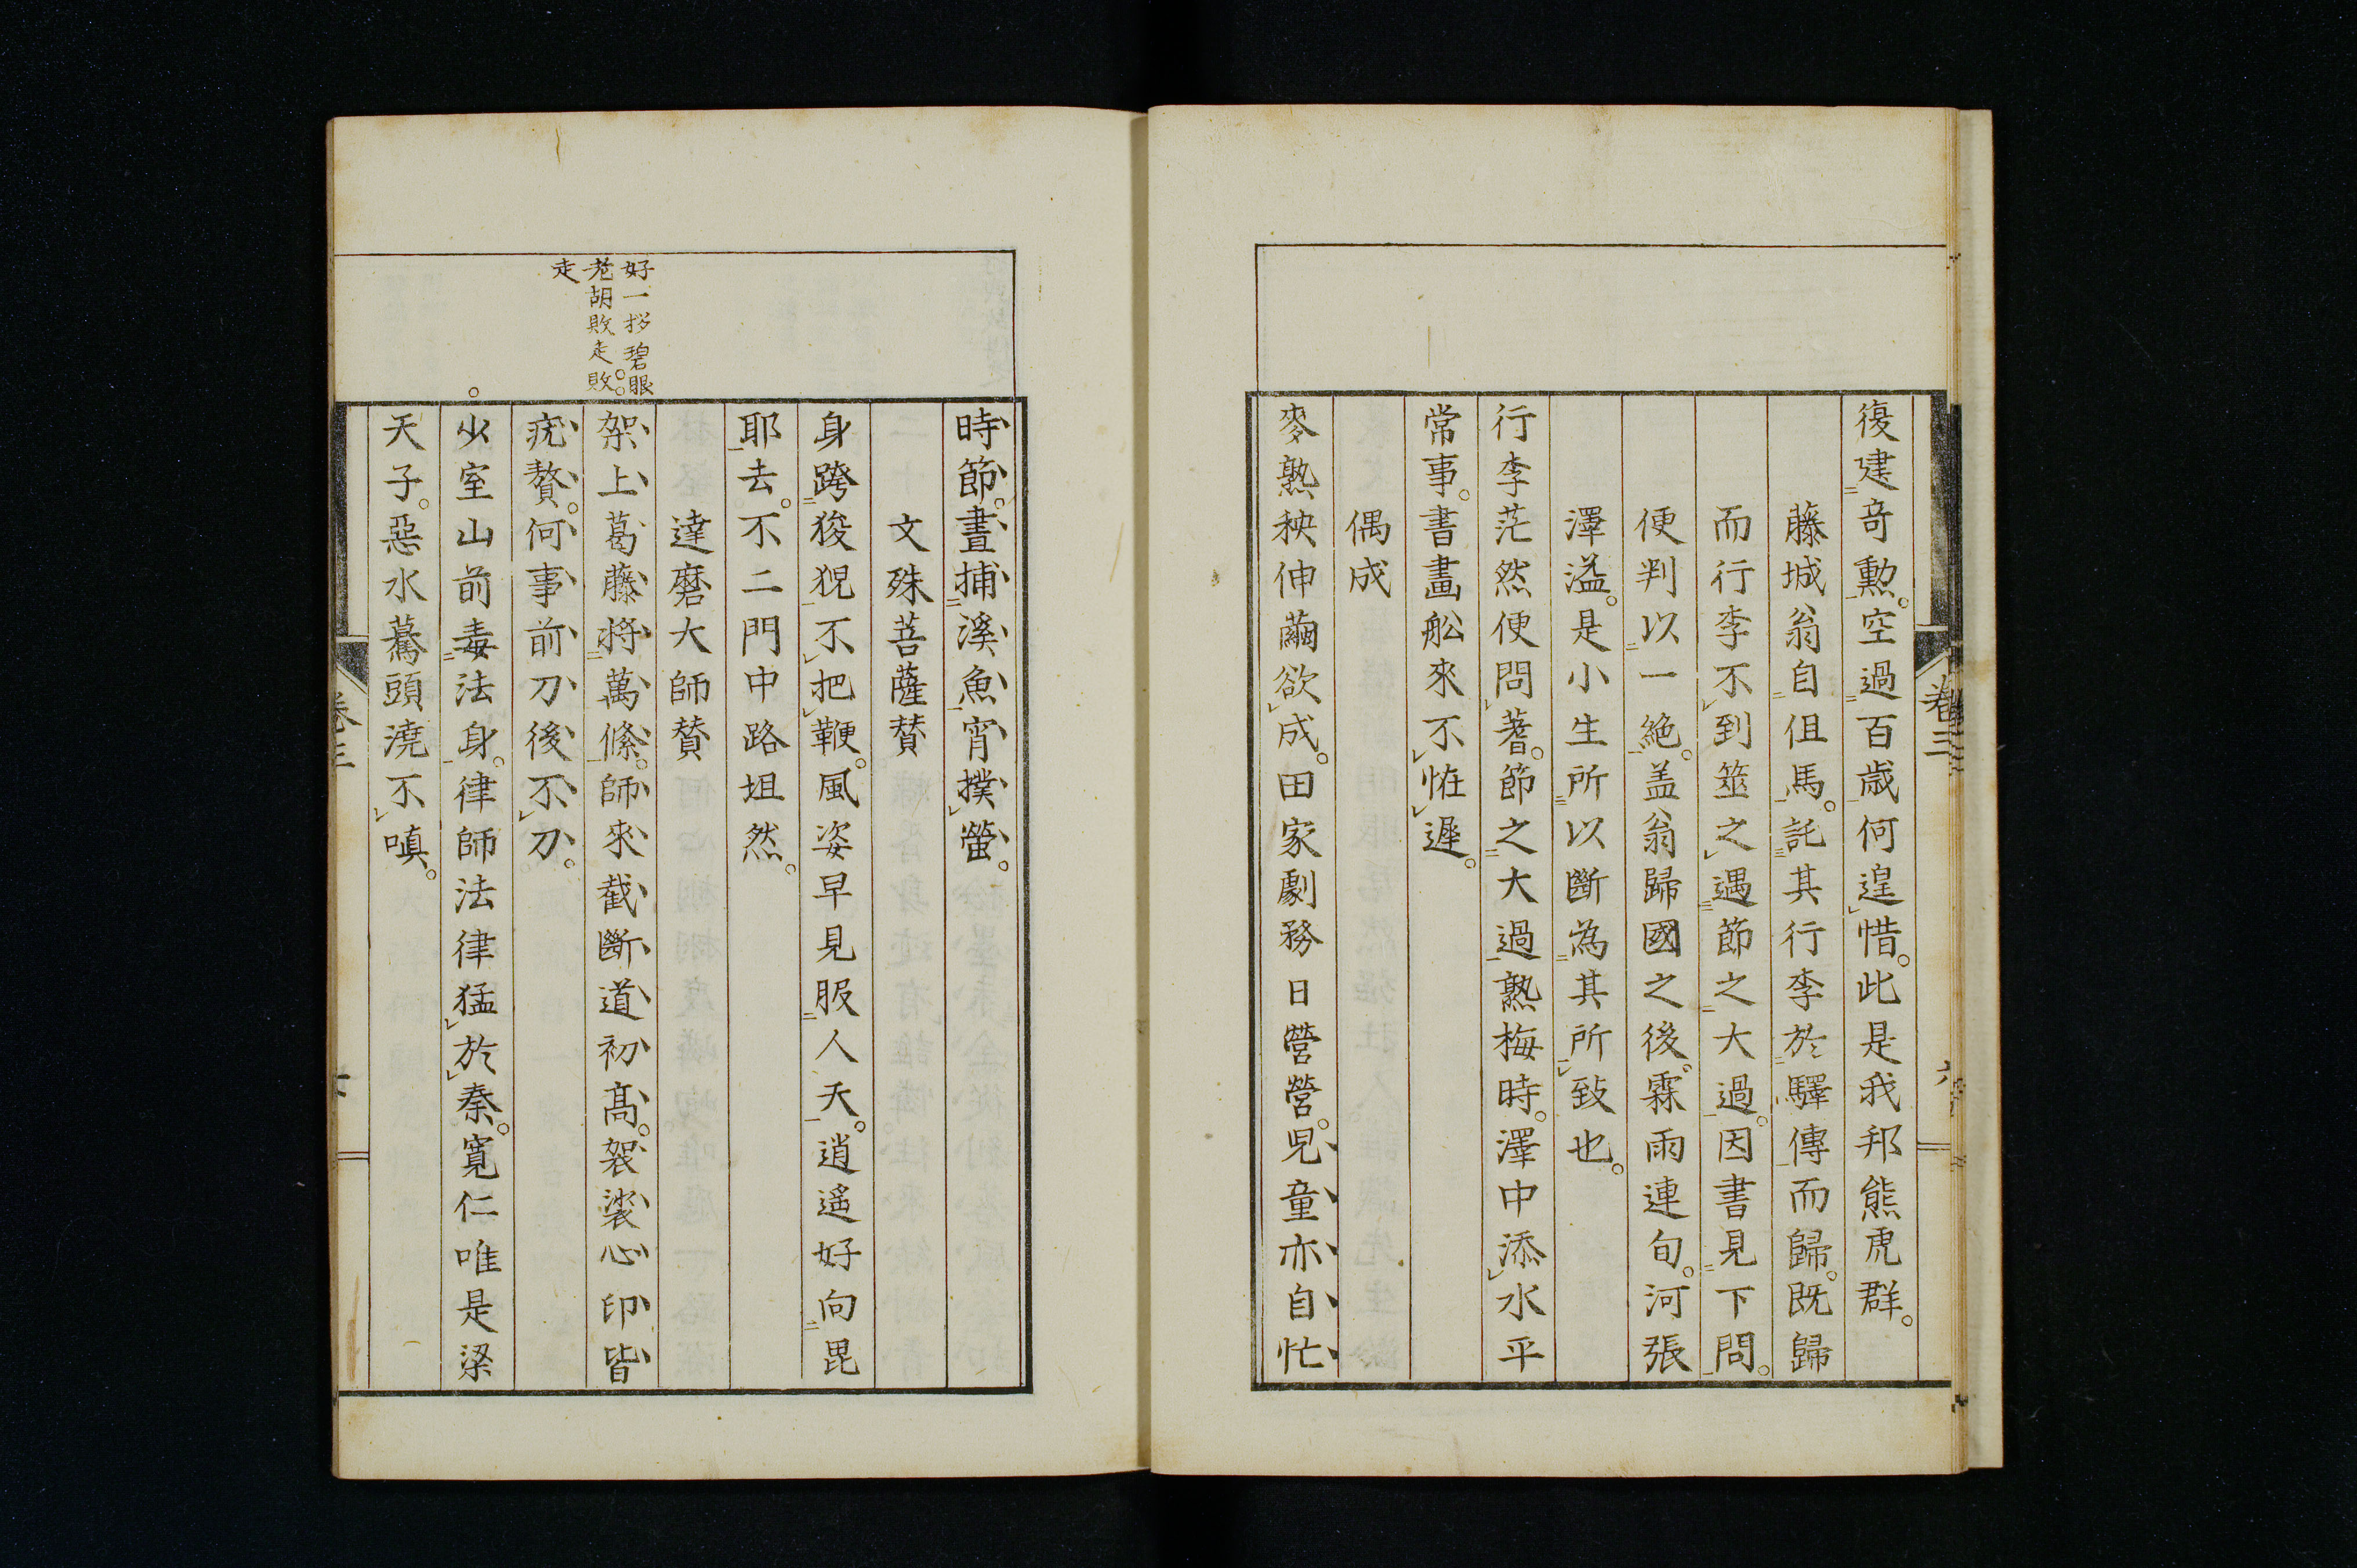 復建奇勲。空過百歳何遑惜。此是我邦熊虎群。
藤城翁自伹馬。託其行李於驛傳而歸。既歸
而行李不到筮之遇節之大過。因書見下問。
便判以一絶。盖翁歸國之後。霖雨連旬。河張
澤溢。是小生所以斷為其所致也。
行李茫然便問蓍。節之大過熟梅時。澤中添水平
常事。書畫舩來不恠遲。
偶成
麥熟秧伸繭欲成。田家劇務日營營。児童亦自忙
卷三
六
時節。晝捕溪魚宵撲螢。
文殊菩薩賛
身跨狻猊不把鞭。風姿早見服人天。逍遙好向毘
耶去。不二門中路坦然。
達磨大師賛
架上葛藤將萬絛。師來截斷道初高。袈裟心印皆
疣贅。何事前刀後不刀。
好一拶碧眼。
老胡敗走。敗
走
少室山前毒法身。律師法律猛於秦。寛仁唯是梁
天子。惡水驀頭澆不嗔。
卷三